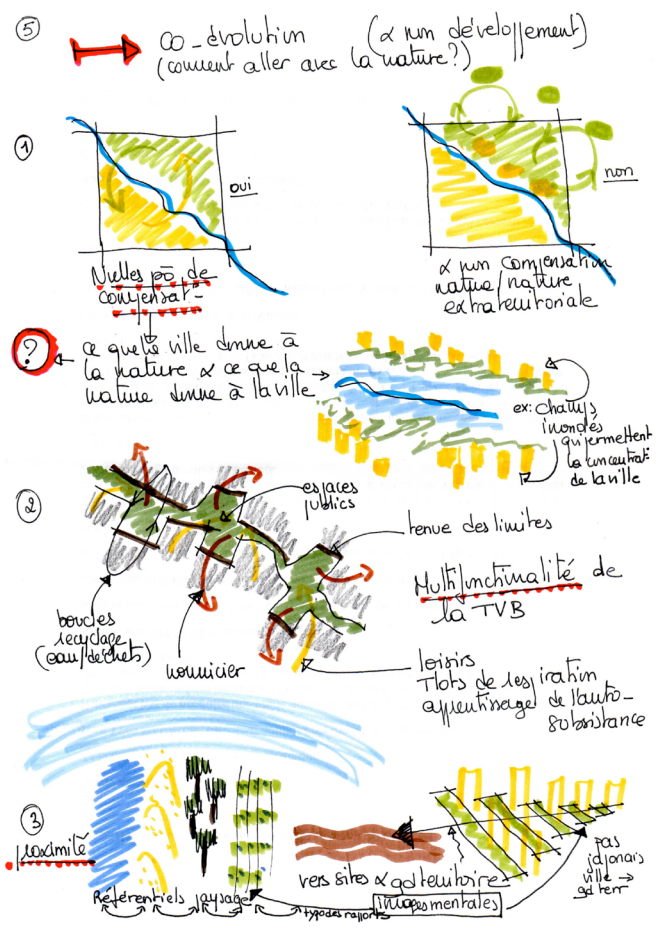 5
co-évolution (α non développement)
(comment aller avec la nature?)
1
oui
non
Nvelles po de
compensat-
α non compensation
nature/nature
extraterritoriale
?
ce que la ville donne à
la nature α ce que la
nature donne à la ville
ex: champs
inondés
qui permettent
la concentrat-
de la ville
2
espaces
publics
tenue des limites
Multifonctionalité de
la TVB
boucles
recyclage
(eau/déchets)
nourricier
loisirs
Ilots de respiration
apprentissage de l'auto-
subsistance
3
proximité
Référentiels paysage
vers sites α gd territoire
images mentales
typo des rapports
pas
ville →
gd terr